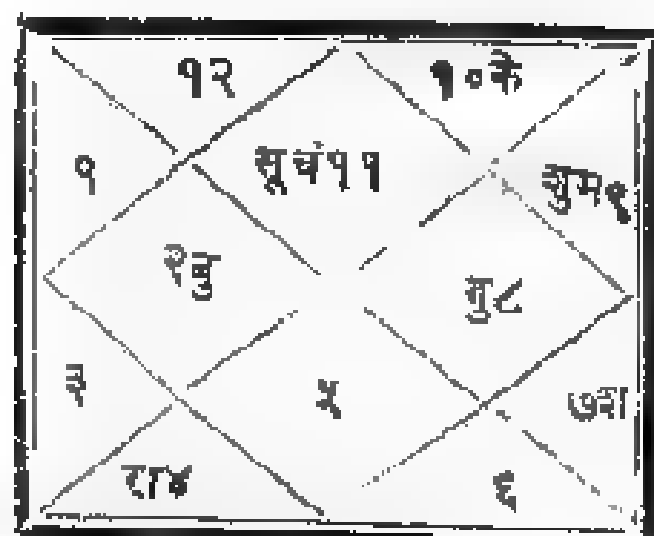 १२
१०के
१
सूचं११
शुमं९
२बु
गु८
३
५
७श
रा४
६